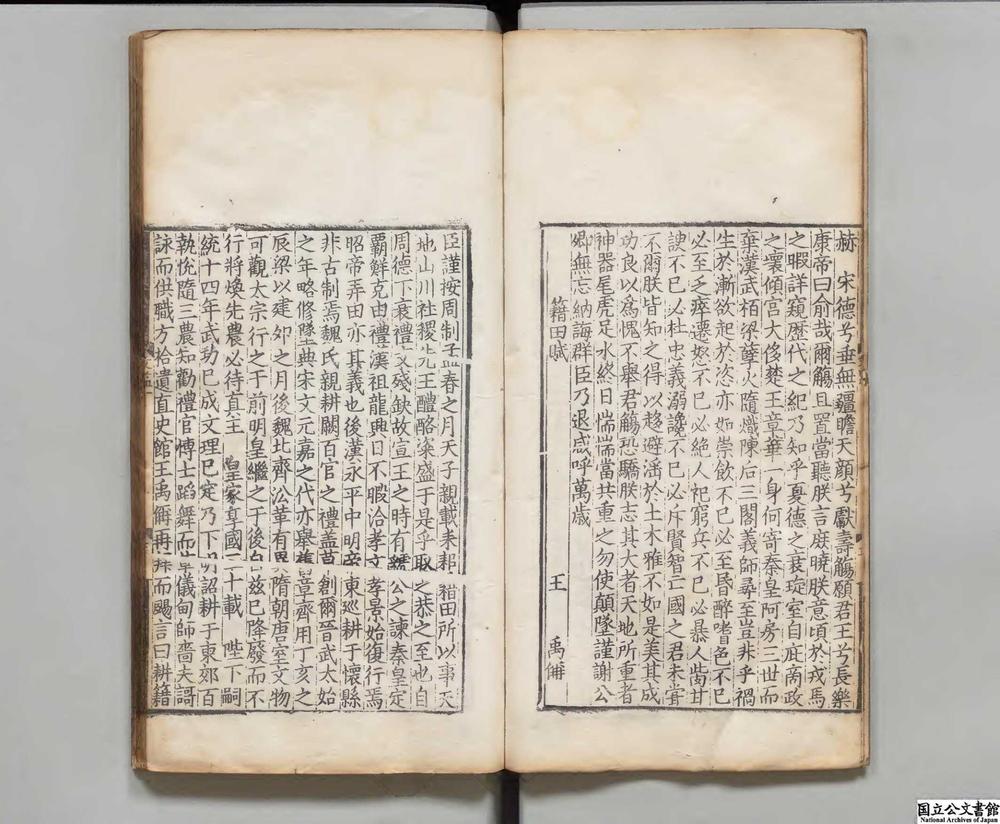 赫　宋德兮垂無疆瞻天顔兮獻壽觴願君王兮長樂
康帝曰俞哉爾觴且置當聽朕言庶曉朕意頃於戎馬
之暇詳窺歷代之紀乃知乎夏德之衰琁室自庇啇政
之壞傾宫大侈楚王章華一身何寄秦皇阿房三世而
棄漢武栢梁孽火隨熾陳后三閣義師尋至豈非乎禍
生於漸欲起於恣亦如崇飲不已必至昬醉嗜色不已
必至乏瘁遷怒不已必絶人祀窮兵不已必暴人崗甘
諛不已必杜忠義溺讒不已必斥賢智二國之君未甞
不爾朕皆知之得以趍避湎於土木雅不如是美其成
功良以爲愧不舉君觴恐驕朕志其大者天地所重者
神器尾虎足水終日惴惴當共重之勿使顛墜謹謝公
卿無忘納誨群臣乃退咸呼萬歳
籍田賦
王　禹偁
臣謹按周制孟春之月天子親載耒耜　籍田所以事天
地山川社稷先王醴酪粢盛于是乎取之恭之至也自
周德下衰禮文殘缺故宣王之時有虢公之諫秦皇定
覇鮮克由禮漢祖龍興日不暇洽孝文孝景始復行焉
昭帝弄田亦其義也後漢永平中明帝東巡耕于懷縣
非古制焉魏氏親耕闕百官之禮蓋草創爾晉武太始
之年略修墜典宋文元嘉之代亦舉舊章齊用丁亥之
辰梁以建卯之月後魏北齊沿革有異隋朝唐室文物
可觀太宗行之于前明皇繼之于後自兹已降廢而不
行將煥先農必待真王　皇家享國三十載　陛下嗣
統十四年武功已成文理已定乃下明詔耕于東郊百
執恱隨三農知勸禮官博士蹈舞而草儀甸師嗇夫謌
詠而供職方拾遺直史館王禹偁再拜而颺言曰耕籍
国立公文書館
National Archives of Japan